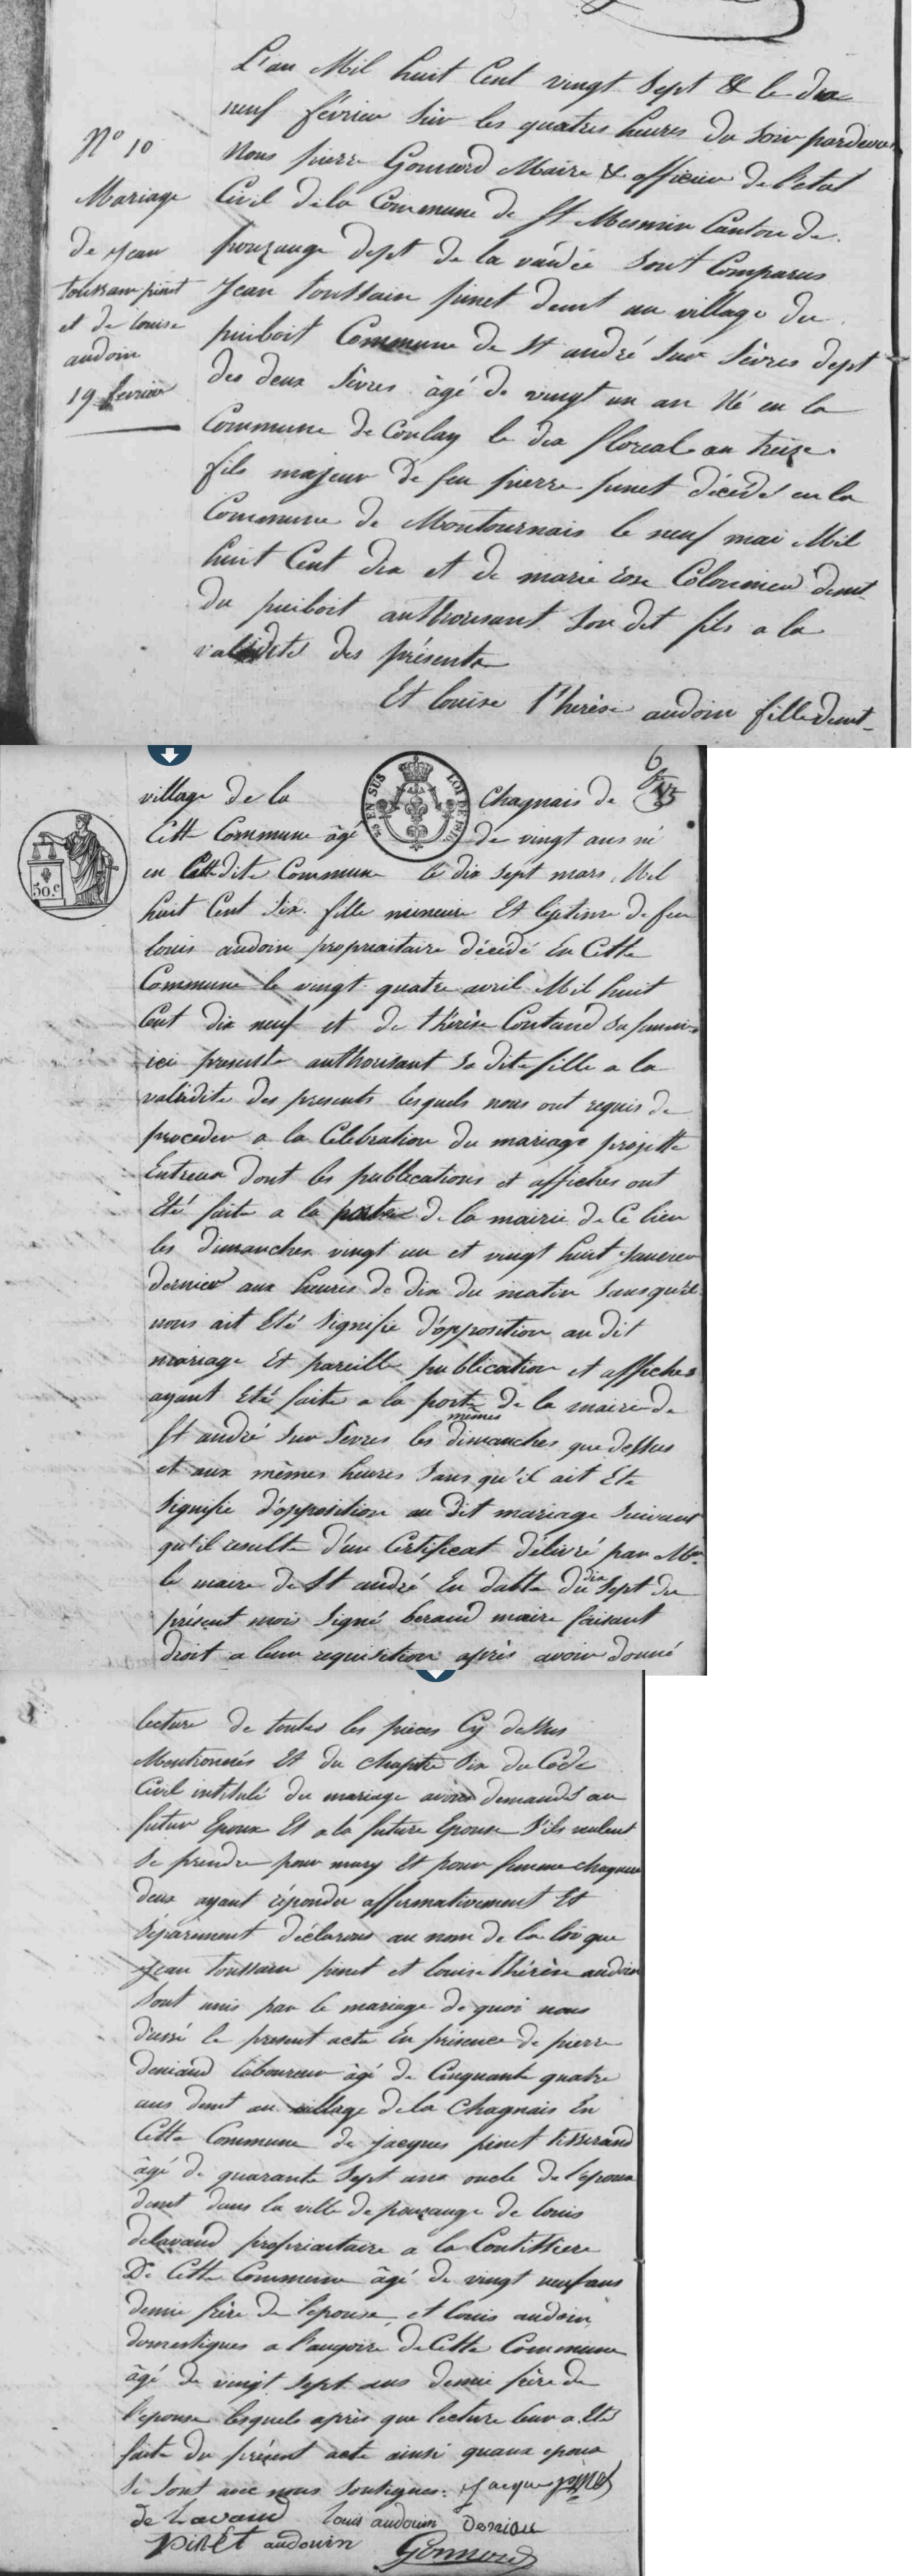 L'an Mil huit Cent vingt Sept & le dix
neuf février Sur les quatres heures du Soir pardevant
N° 10
Nous pierre Gonnord Maire & officier de l'etat
Mariage
Civil de la Commune de St Mesmin Canton de
de jean
pouzauge dept de la vandée Sont Comparus
toussain pinet
Jean toussain pinet demt au village du
et de louise
puiboit Commune de St andré Sur Sèvres dept
audoin
des deux Sèvres âgé de vingt un an Né en la
19 fevrier
Commune de Coulay le dix floreal an treize
fils majeur de feu pierre pinet décédé en la
Commune de Montournais le neuf mai Mil
huit Cent dix et de marie rose demt
du puiboit authorisant Son dit fils a la
validité des présente
Et louise thérèse audoin fille demt
village de la Chagnais de
Cette Commune âgé de vingt ans né
en Cette dite Commune le dix Sept mars Mil
huit Cent Six fille mineure Et légitime de feu
louis audoin propriaitaire décédé En Cette
Commune le vingt quatre avril Mil huit
Cent dix neuf et de thérèse Coutand Sa femme
ici presente authorisant Sa dite fille a la
validite des presents lesquels nous ont requis de
proceder a la Célébration du mariage projetté
Entreux dont les publications et affiches ont
Eté faite a la porte de la mairie de Ce lieu
les dimanches vingt un et vingt huit Janvier
dernier aux heures de dix du matin Sans qu'il
nous ait Eté Signifie d'opposition au dit
mariage Et pareille publication et affiches
ayant Eté faite a la porte de la mairie de
St andré Sur Sevres les mêmes dimanches que dessus
et aux mêmes heures Sans qu'il ait Eté
Signifie d'opposition au dit mariage Suivant
qu'il résulte d'un Certificat délivré par Mr
le maire de St andré En datte du dix Sept du
présent mois Signé beraud maire faisant
droit a leur requisition après avoir donné
lecture de toutes les pieces Cy dessus
Mentionnés Et du chapitre Six du Code
Civil intitulé du mariage avons demandé au
futur Epoux Et a la future Epouse S'ils veulent
Se prendre pour mary Et pour femme chaqun
deux ayant répondu affirmativement Et
Séparément déclarons au nom de la loi que
Jean toussain pinet et louise thérèse audoin
Sont unis par le mariage de quoi nous
dressé le present acte En présence de pierre
deniaud laboureur âgé de Cinquante quatre
ans demt au village de la Chagnais En
Cette Commune de jacques pinet tisserand
âgé de quarante Sept ans oncle de l'epoux
demt dans la ville de pouzauge de louis
delavaud propriaitaire a la
De Cette Commune âgé de vingt neuf ans
demie frère de l'epouse et louis audoin
domestiques a l'augoire de Cette Commune
âgé de vingt Sept ans demie frère de
l'epouse lesquels après que lecture leur a Eté
faite du présent acte ainsi quaux epoux
Se Sont avec nous Soutignes. Jacques pinet
de Lavaud louis audouin deniau
Pinet audouin Gonnord